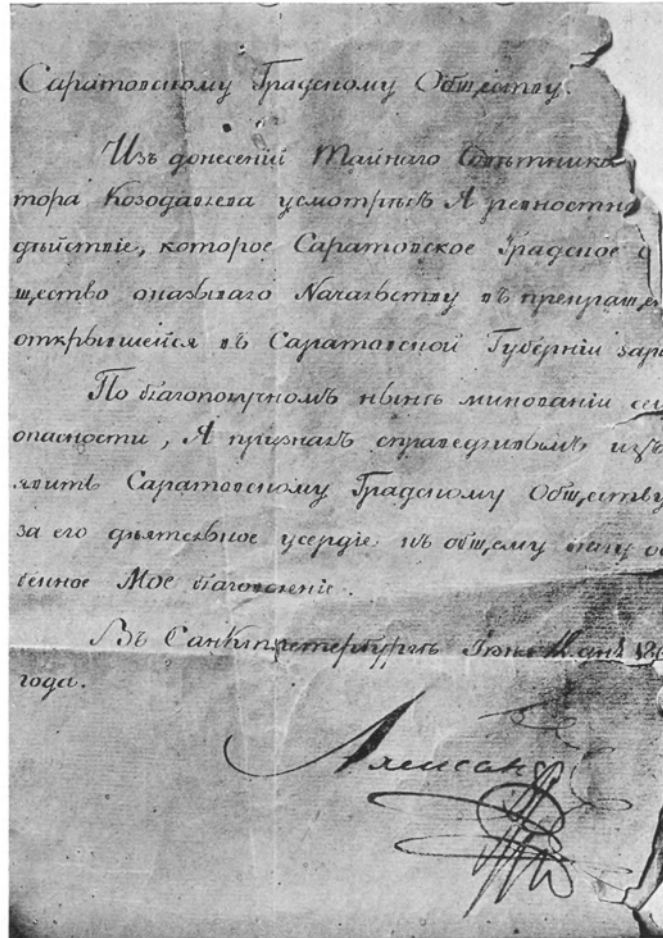 Саратовскому Градскому Обществу.
Изъ донесеній Тайнаго Совѣтника
тора Козодавлева усмотрѣлъ Я ревностн
дѣйствіе, которое Саратовское Градское О
щество оказывало Начальству въ прекращен
открывшейся въ Саратовской Губерніи зара
По благополучномъ нынѣ минованіи сей
опасности, Я призналъ справедливымъ изъ
явить Саратовскому Градскому Обществу
за его дѣятельное усердіе къ общему благу ос
бенное Мое благоволеніе.
Въ Санктпетербургѣ 180
года.
Александ